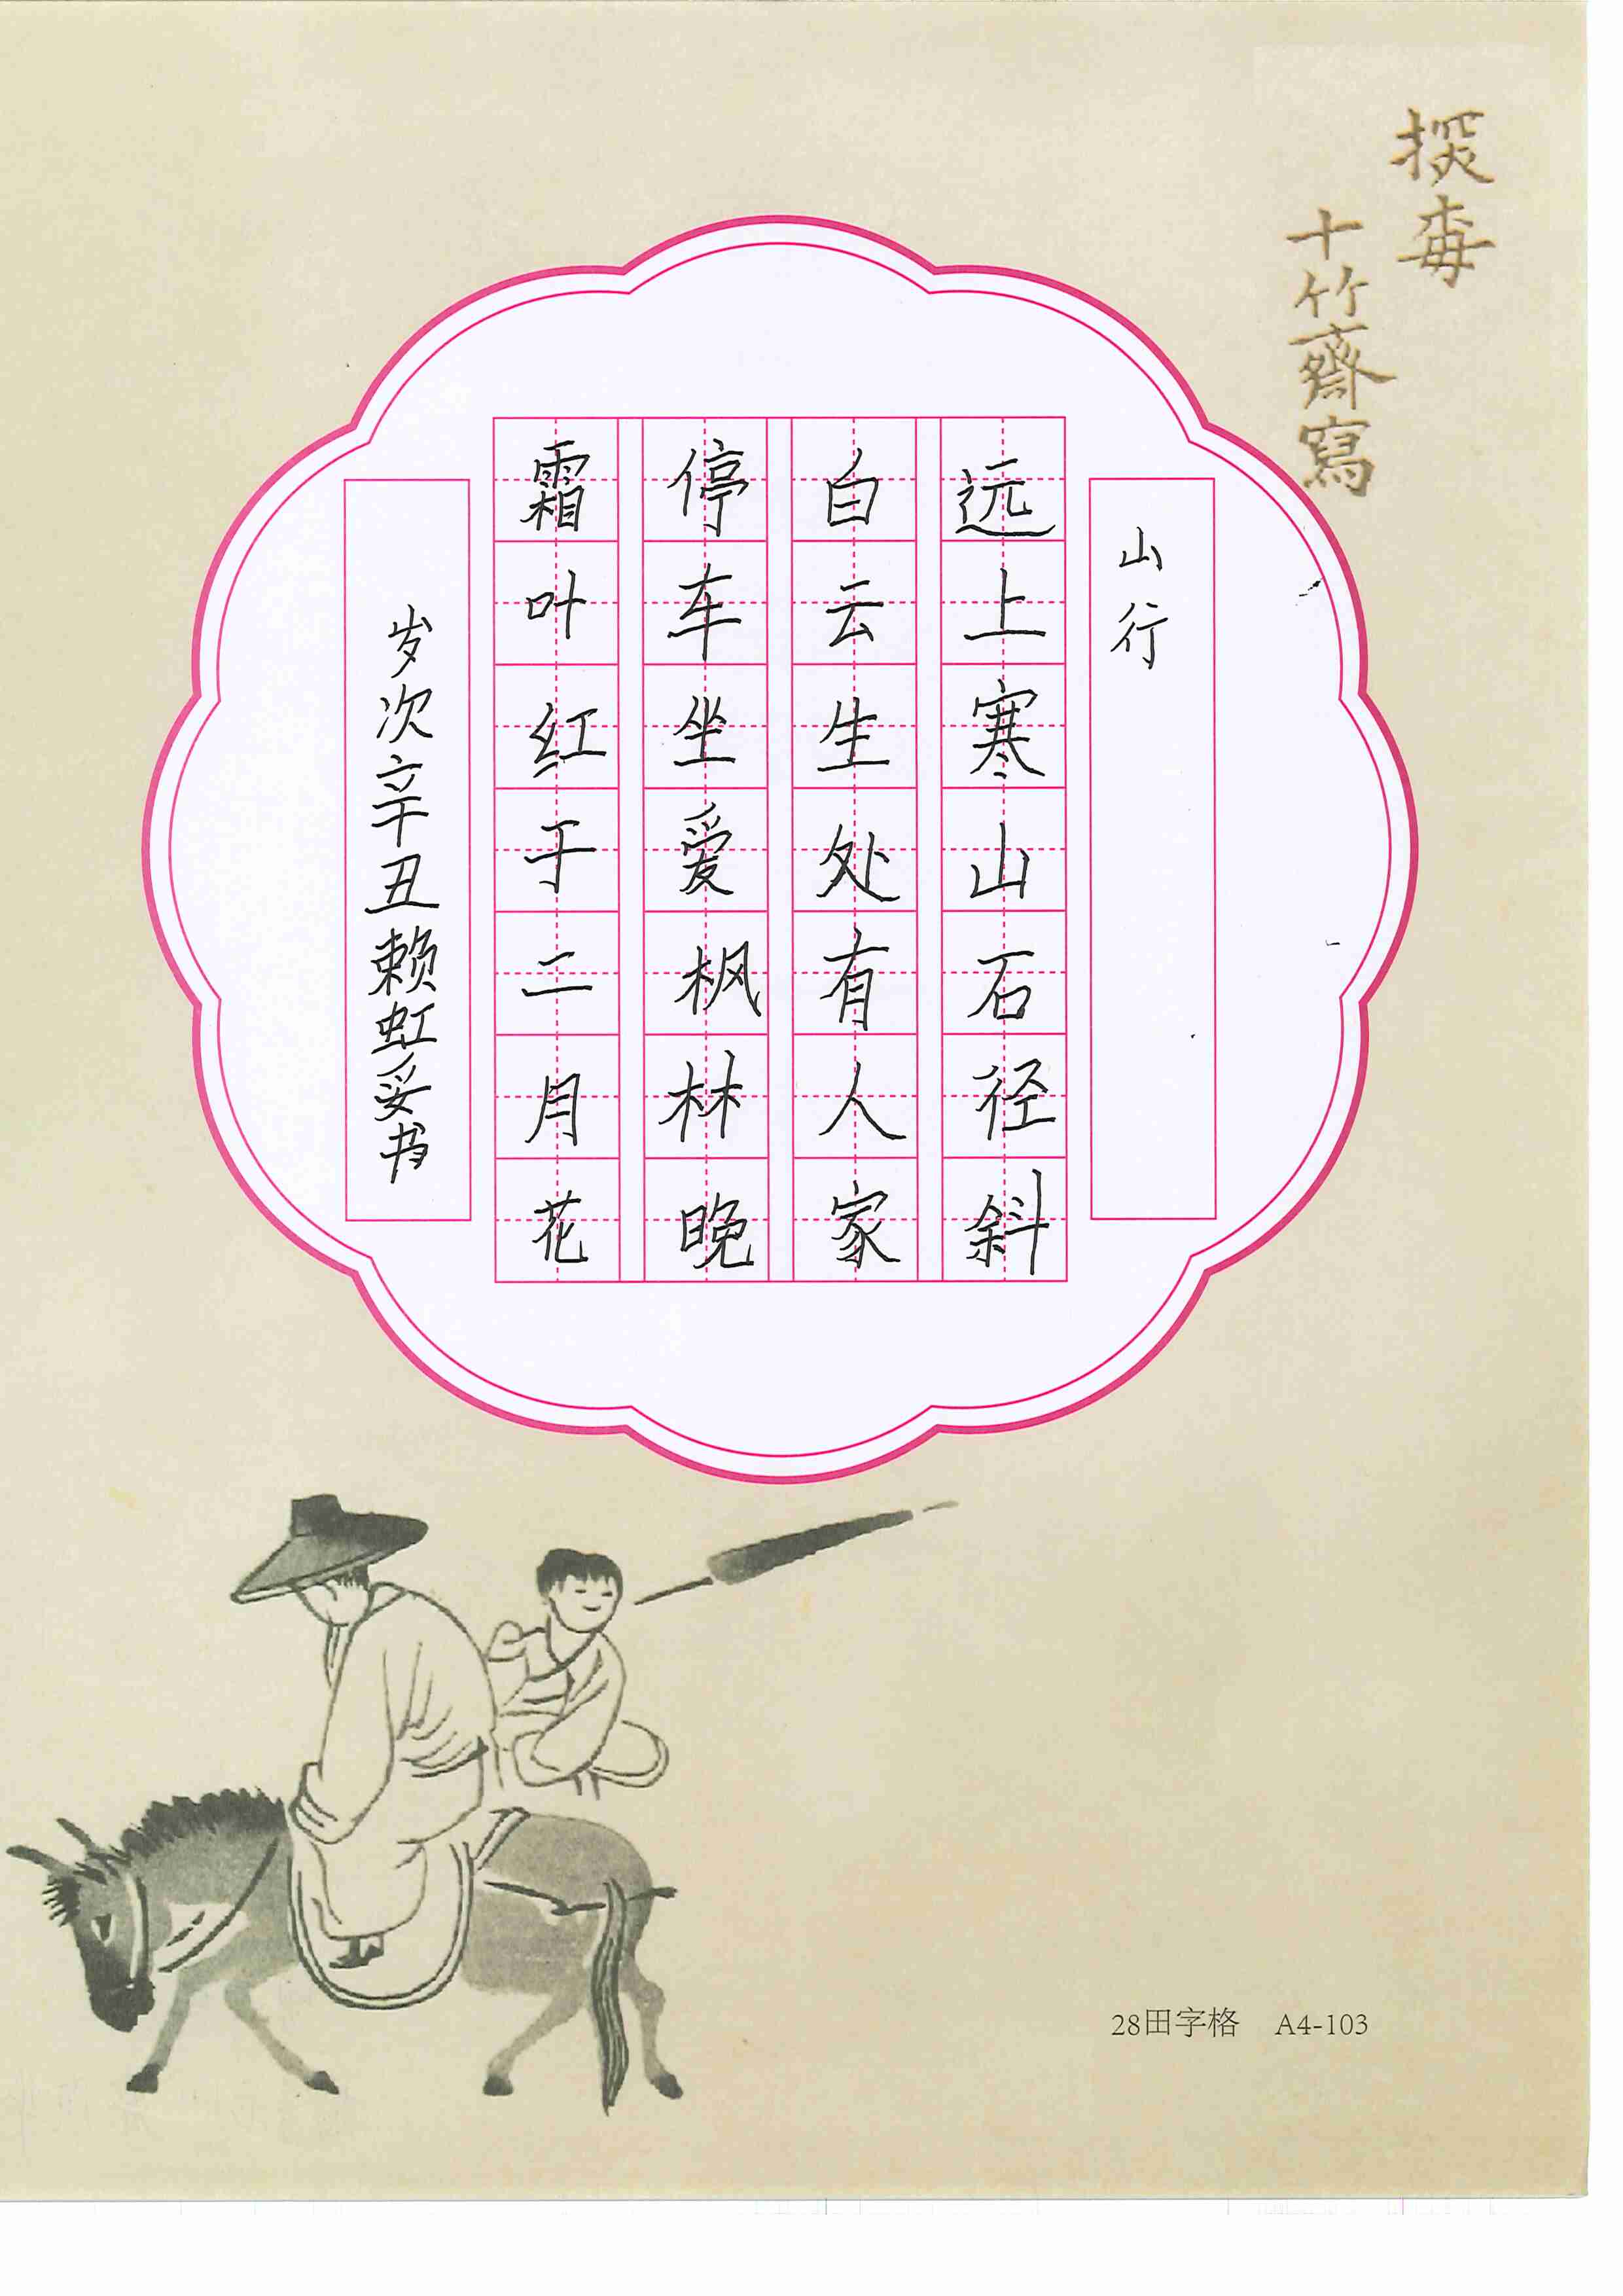 探梅
十竹齋寫
山行
远上寒山石径斜
白云生处有人家
停车坐爱枫林晚
霜叶红于二月花
岁次辛丑赖虹妥书
28田字格 A4-103